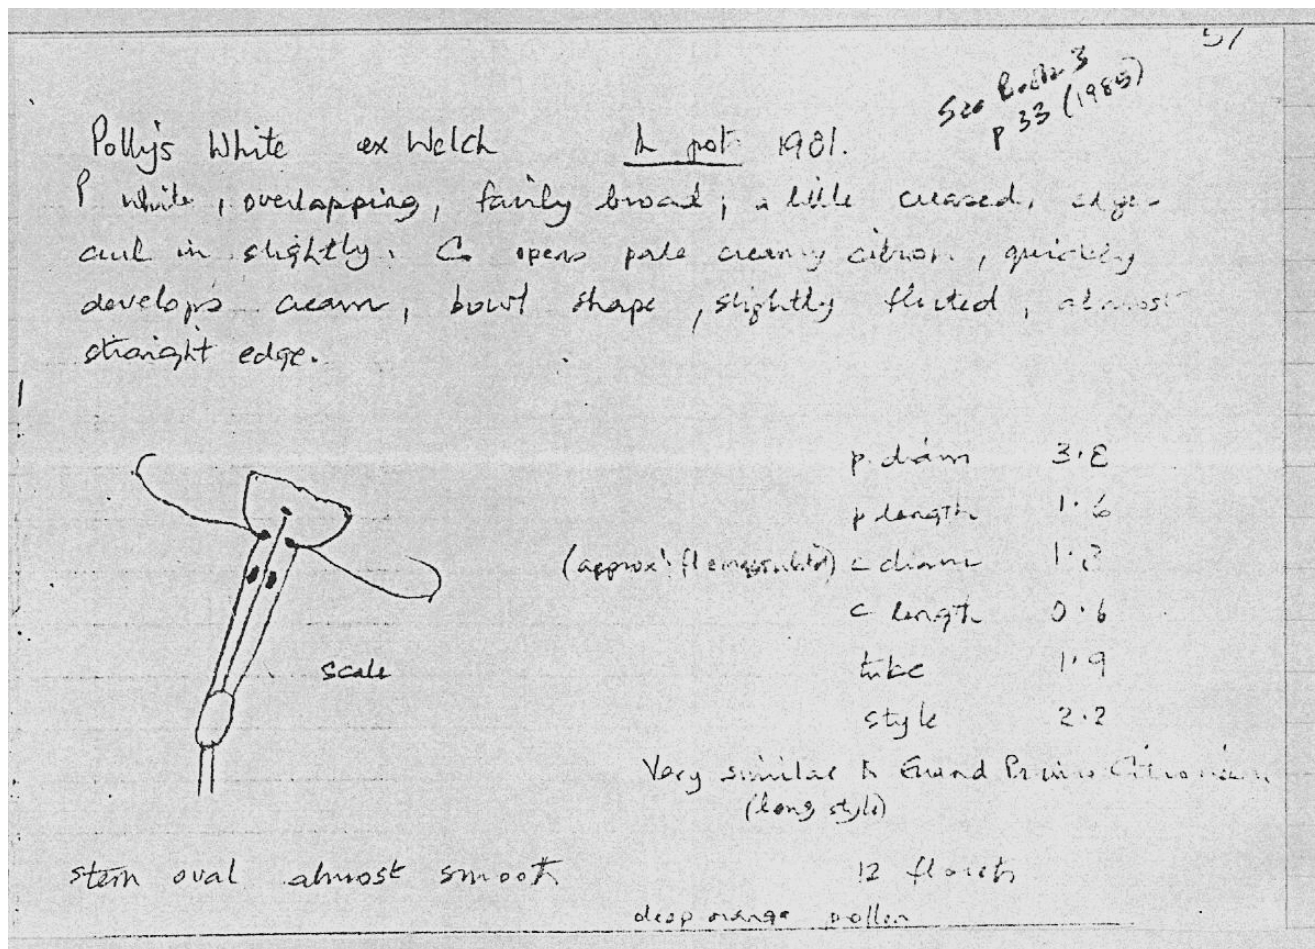 51
See Book 3
p 33 (1985)
Polly's White ex Welch In pot 1981.
P white, overlapping, fairly broad, a little creased, edges
curl in slightly. C opens pale creamy citron, quickly
develops cream, bowl shape, slightly fluted, almost
straight edge.
p. diam 3.8
p length 1.6
(approx! fl) c diam 1.3
c length 0.6
scale
tube 1.9
style 2.2
Very similar to Grand Primo Citronière
(long style)
stem oval almost smooth
12 florets
deep orange pollen